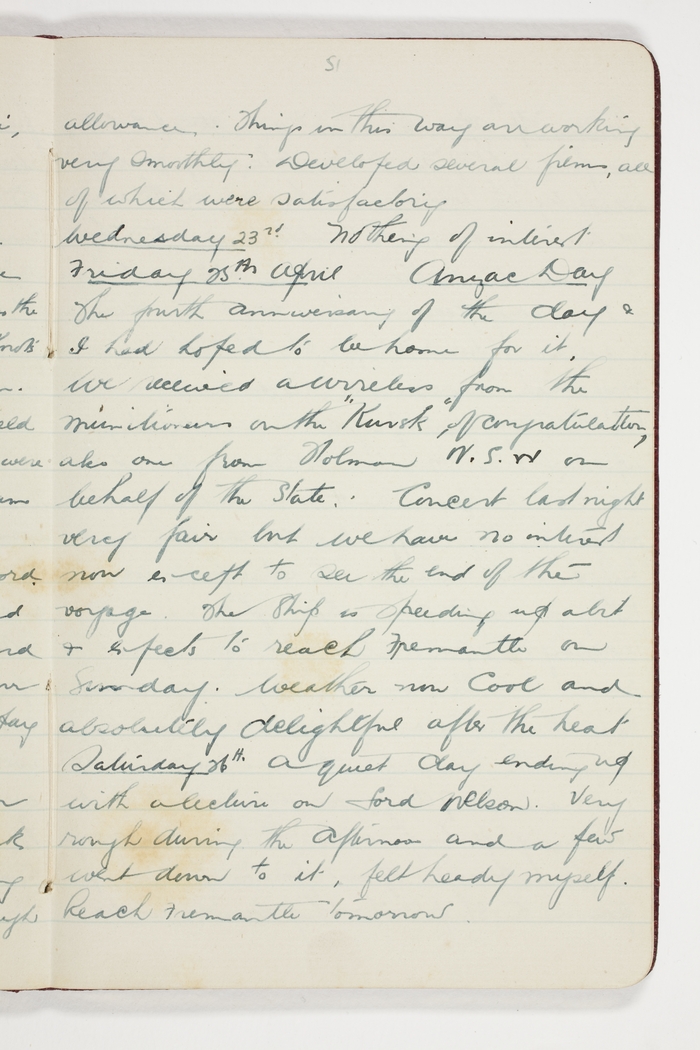 51
allowance. Things in this way are working
very smoothly. Developed several films, all
of which were satisfactory
Wednesday 23rd Nothing of interest
Friday 25th April Anzac Day
The fourth anniversary of the day &
I had hoped to be home for it.
We received a wireless from the
munitioners on the "Kursk", of congratulation,
also one from Holman N.S.W on
behalf of the State. Concert last night
very fair but we have no interest
now except to see the end of the
voyage. The Ship is speeding up a bit
& expects to reach Fremantle on
Sunday. Weather now Cool and
absolutely delightful after the heat
Saturday 26th. A quiet day ending up
with a lecture on Lord Nelson. Very
rough during the afternoon and a few
went down to it, felt heady myself.
Reach Fremantle tomorrow.